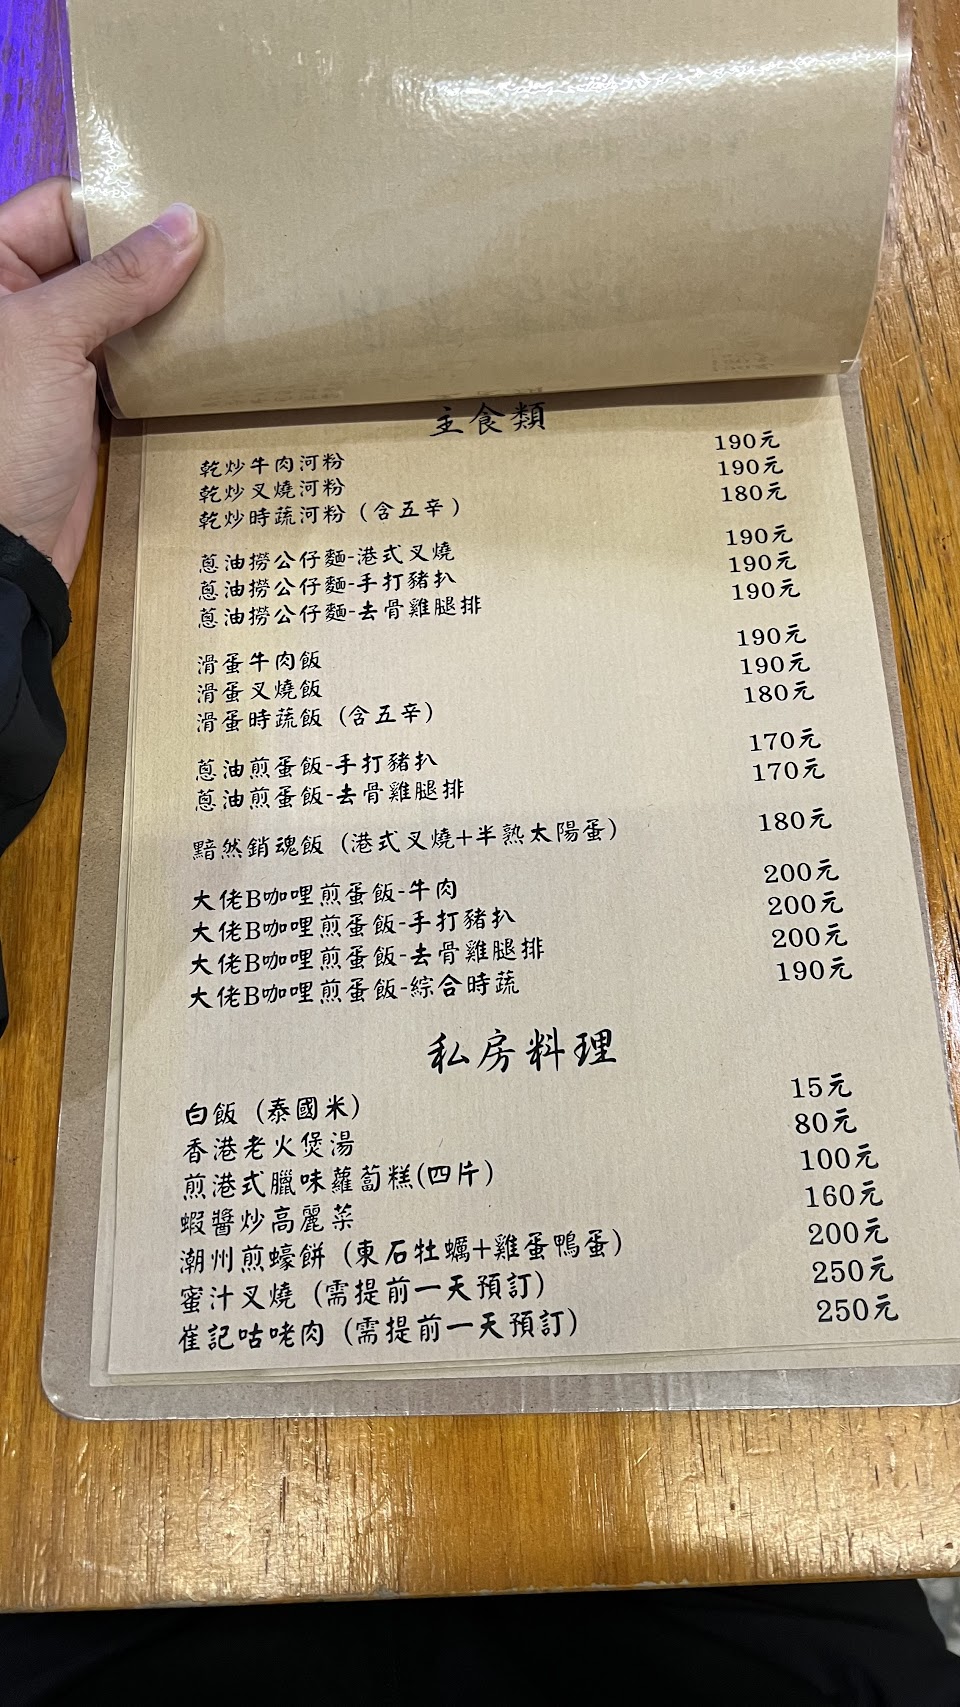 主食類
乾炒牛肉河粉 190元
乾炒叉燒河粉 190元
乾炒時蔬河粉（含五辛） 180元
蔥油撈公仔麵-港式叉燒 190元
蔥油撈公仔麵-手打豬扒 190元
蔥油撈公仔麵-去骨雞腿排 190元
滑蛋牛肉飯 190元
滑蛋叉燒飯 190元
滑蛋時蔬飯（含五辛） 180元
蔥油煎蛋飯-手打豬扒 170元
蔥油煎蛋飯-去骨雞腿排 170元
黯然銷魂飯（港式叉燒+半熟太陽蛋） 180元
大佬B咖哩煎蛋飯-牛肉 200元
大佬B咖哩煎蛋飯-手打豬扒 200元
大佬B咖哩煎蛋飯-去骨雞腿排 200元
大佬B咖哩煎蛋飯-綜合時蔬 190元
私房料理
白飯（泰國米） 15元
香港老火煲湯 80元
煎港式臘味蘿蔔糕(四片) 100元
蝦醬炒高麗菜 160元
潮州煎蠔餅（東石牡蠣+雞蛋鴨蛋） 200元
蜜汁叉燒（需提前一天預訂） 250元
崔記咕咾肉（需提前一天預訂） 250元